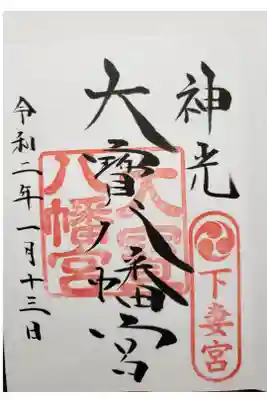 神光
下妻宮
大寳八幡宮
大寳
八幡宮
令和二年一月十三日